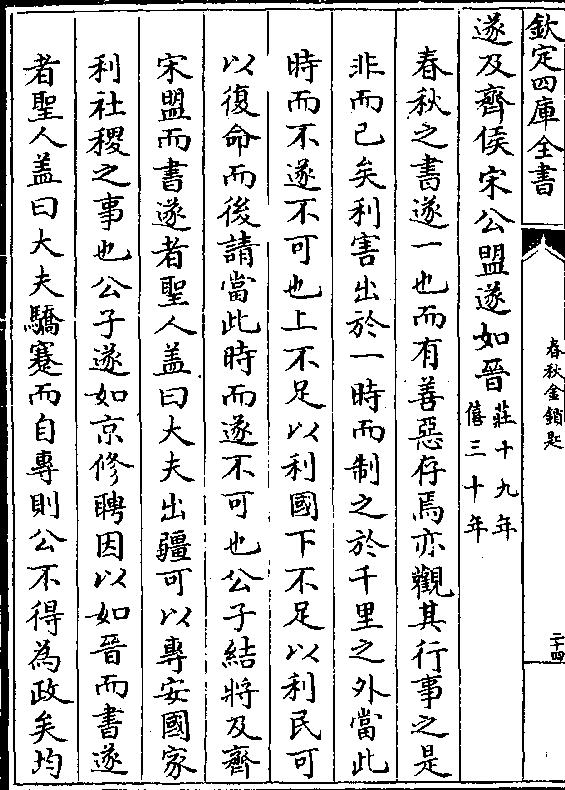 欽定四庫全書
春秋金鎖匙
二十四
遂及齊侯宋公盟遂如晉莊十九年
僖三十年
春秋之書遂一也而有善惡存焉亦觀其行事之是
非而已矣利害出於一時而制之於千里之外當此
時而不遂不可也上不足以利國下不足以利民可
以復命而後請當此時而遂不可也公子結將及齊
宋盟而書遂者聖人盖曰大夫出疆可以專安國家
利社稷之事也公子遂如京修聘因以如晉而書遂
者聖人盖曰大夫驕蹇而自專則公不得為政矣均